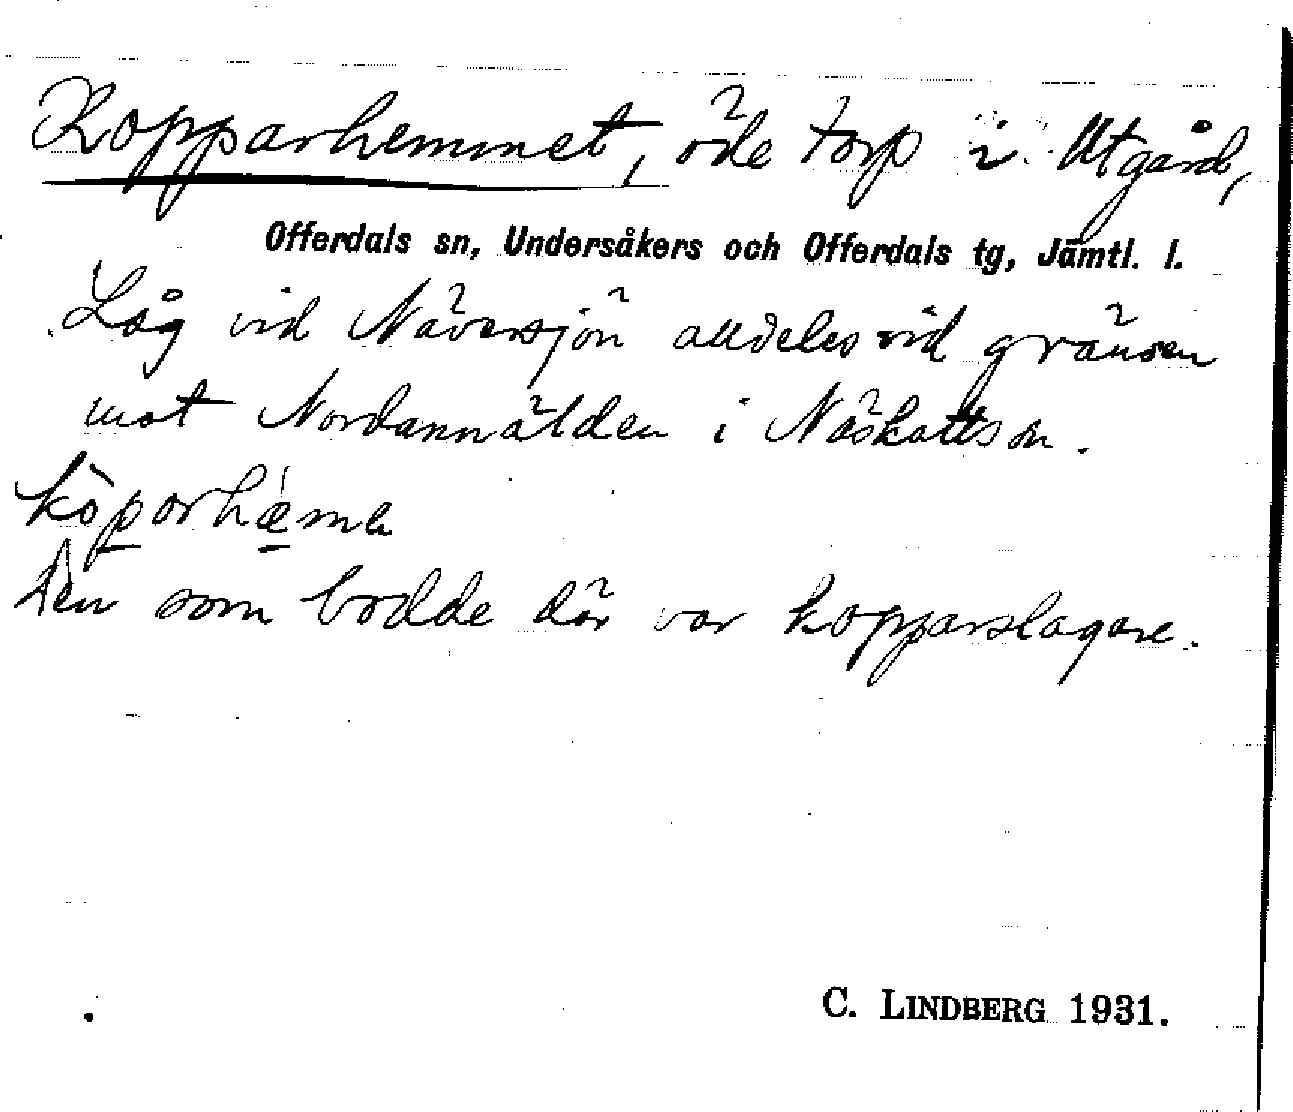 Kopparhemmet, öde torp i Utgård,
Offerdals sn, Undersåkers och Offerdals tg, Jämtl. l.
Låg vid Näversjön alldeles vid gränsen
mot Nordannälden i Näskotts sn.
Den som bodde där var kopparslagare.
C. LINDBERG 1931.